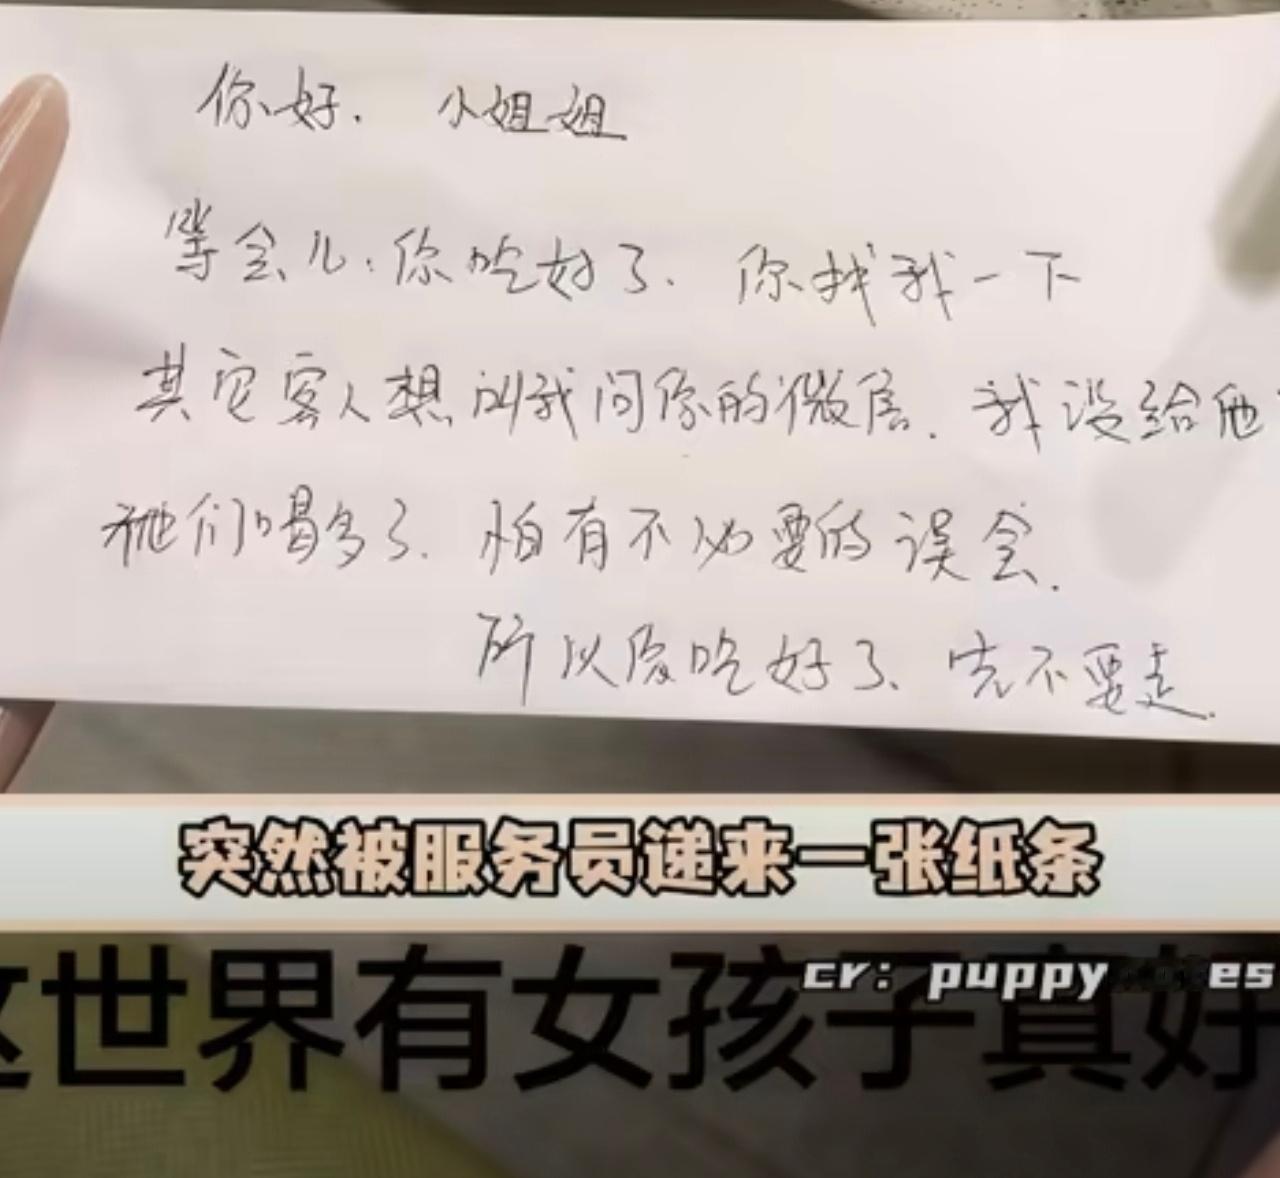 你好. 小姐姐
等会儿.你吃好了. 你找我一下
其它客人想叫我问你的微信. 我没给他
他们喝多了. 怕有不必要的误会.
所以你吃好了. 先不要走.
突然被服务员递来一张纸条
cr: puppy es
这世界有女孩子真好